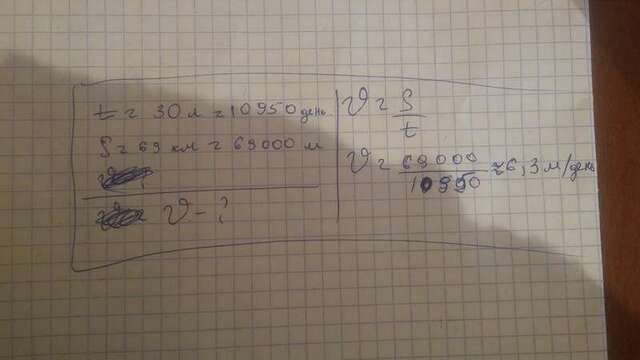 t = 30 л = 10950 день
S = 69 км = 69000 м
v - ?
v = S / t
v = 69000 / 10950 ≈ 6,3 м/день